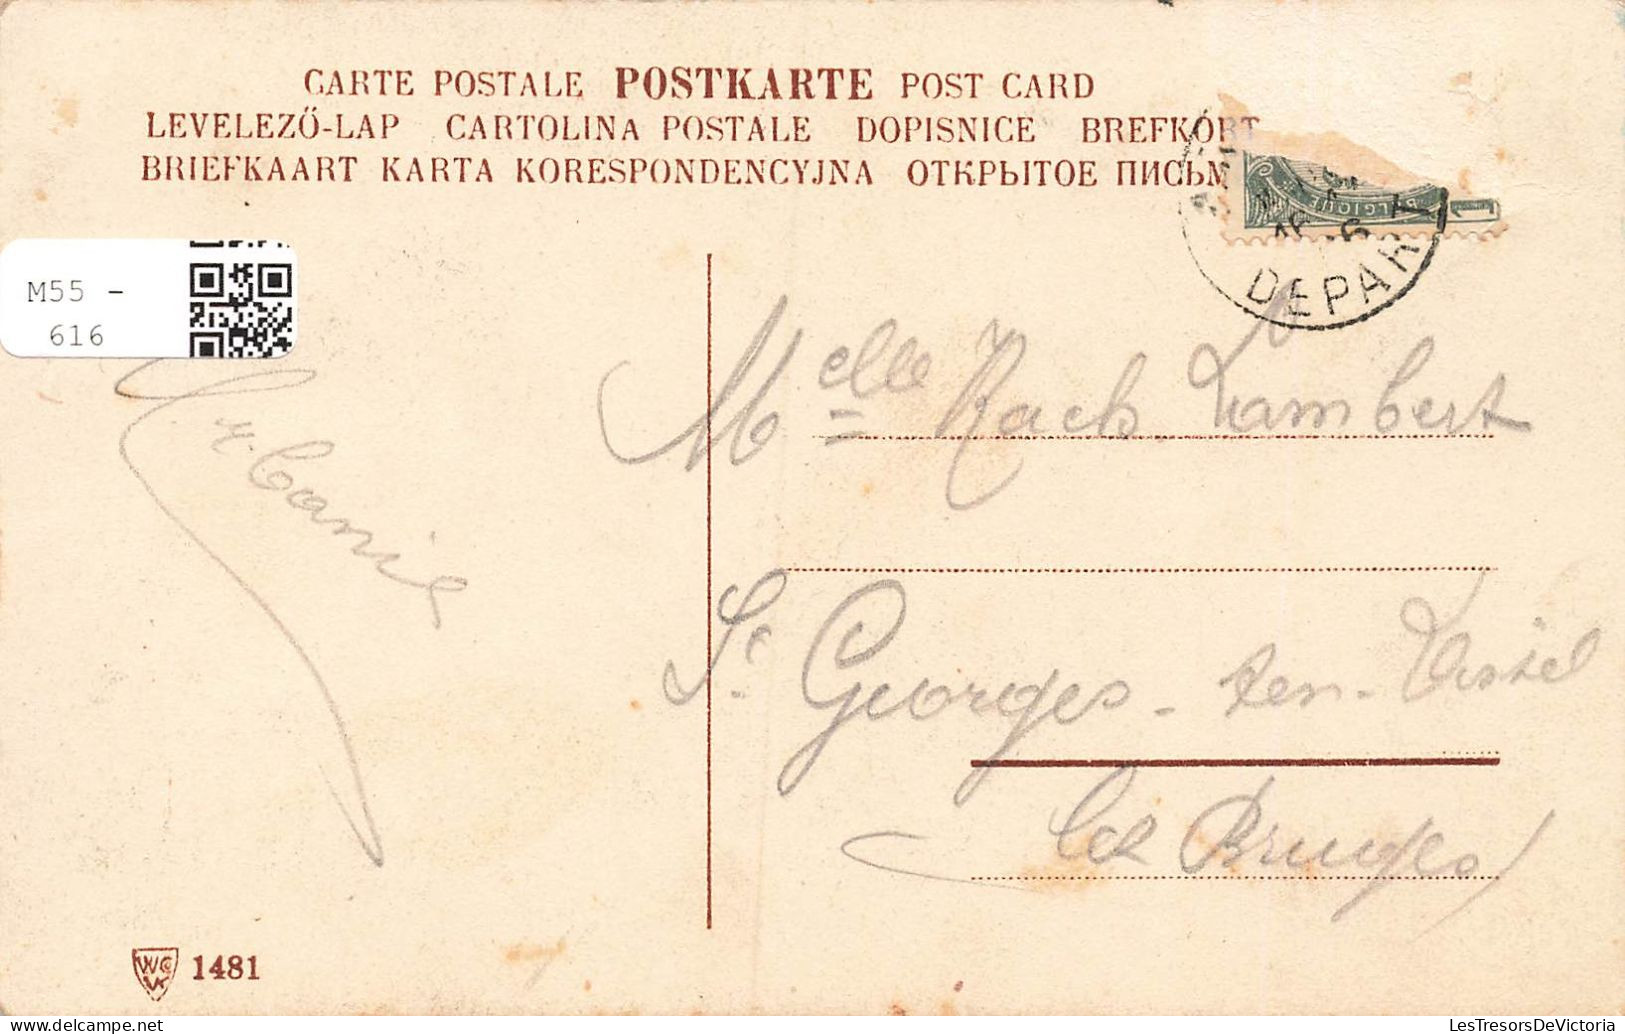 CARTE POSTALE POSTKARTE POST CARD
LEVELEZŐ-LAP CARTOLINA POSTALE DOPISNICE BREFKORT
BRIEFKAART KARTA KORESPONDENCYJNA ОТКРЫТОЕ ПИСЬМ
BELGIQUE 1
DEPART
M55 -
616
Melle Rach Lambert
St Georges - ten - Distel
Lez Bruges
WCo
1481
LesTresorsDeVictoria